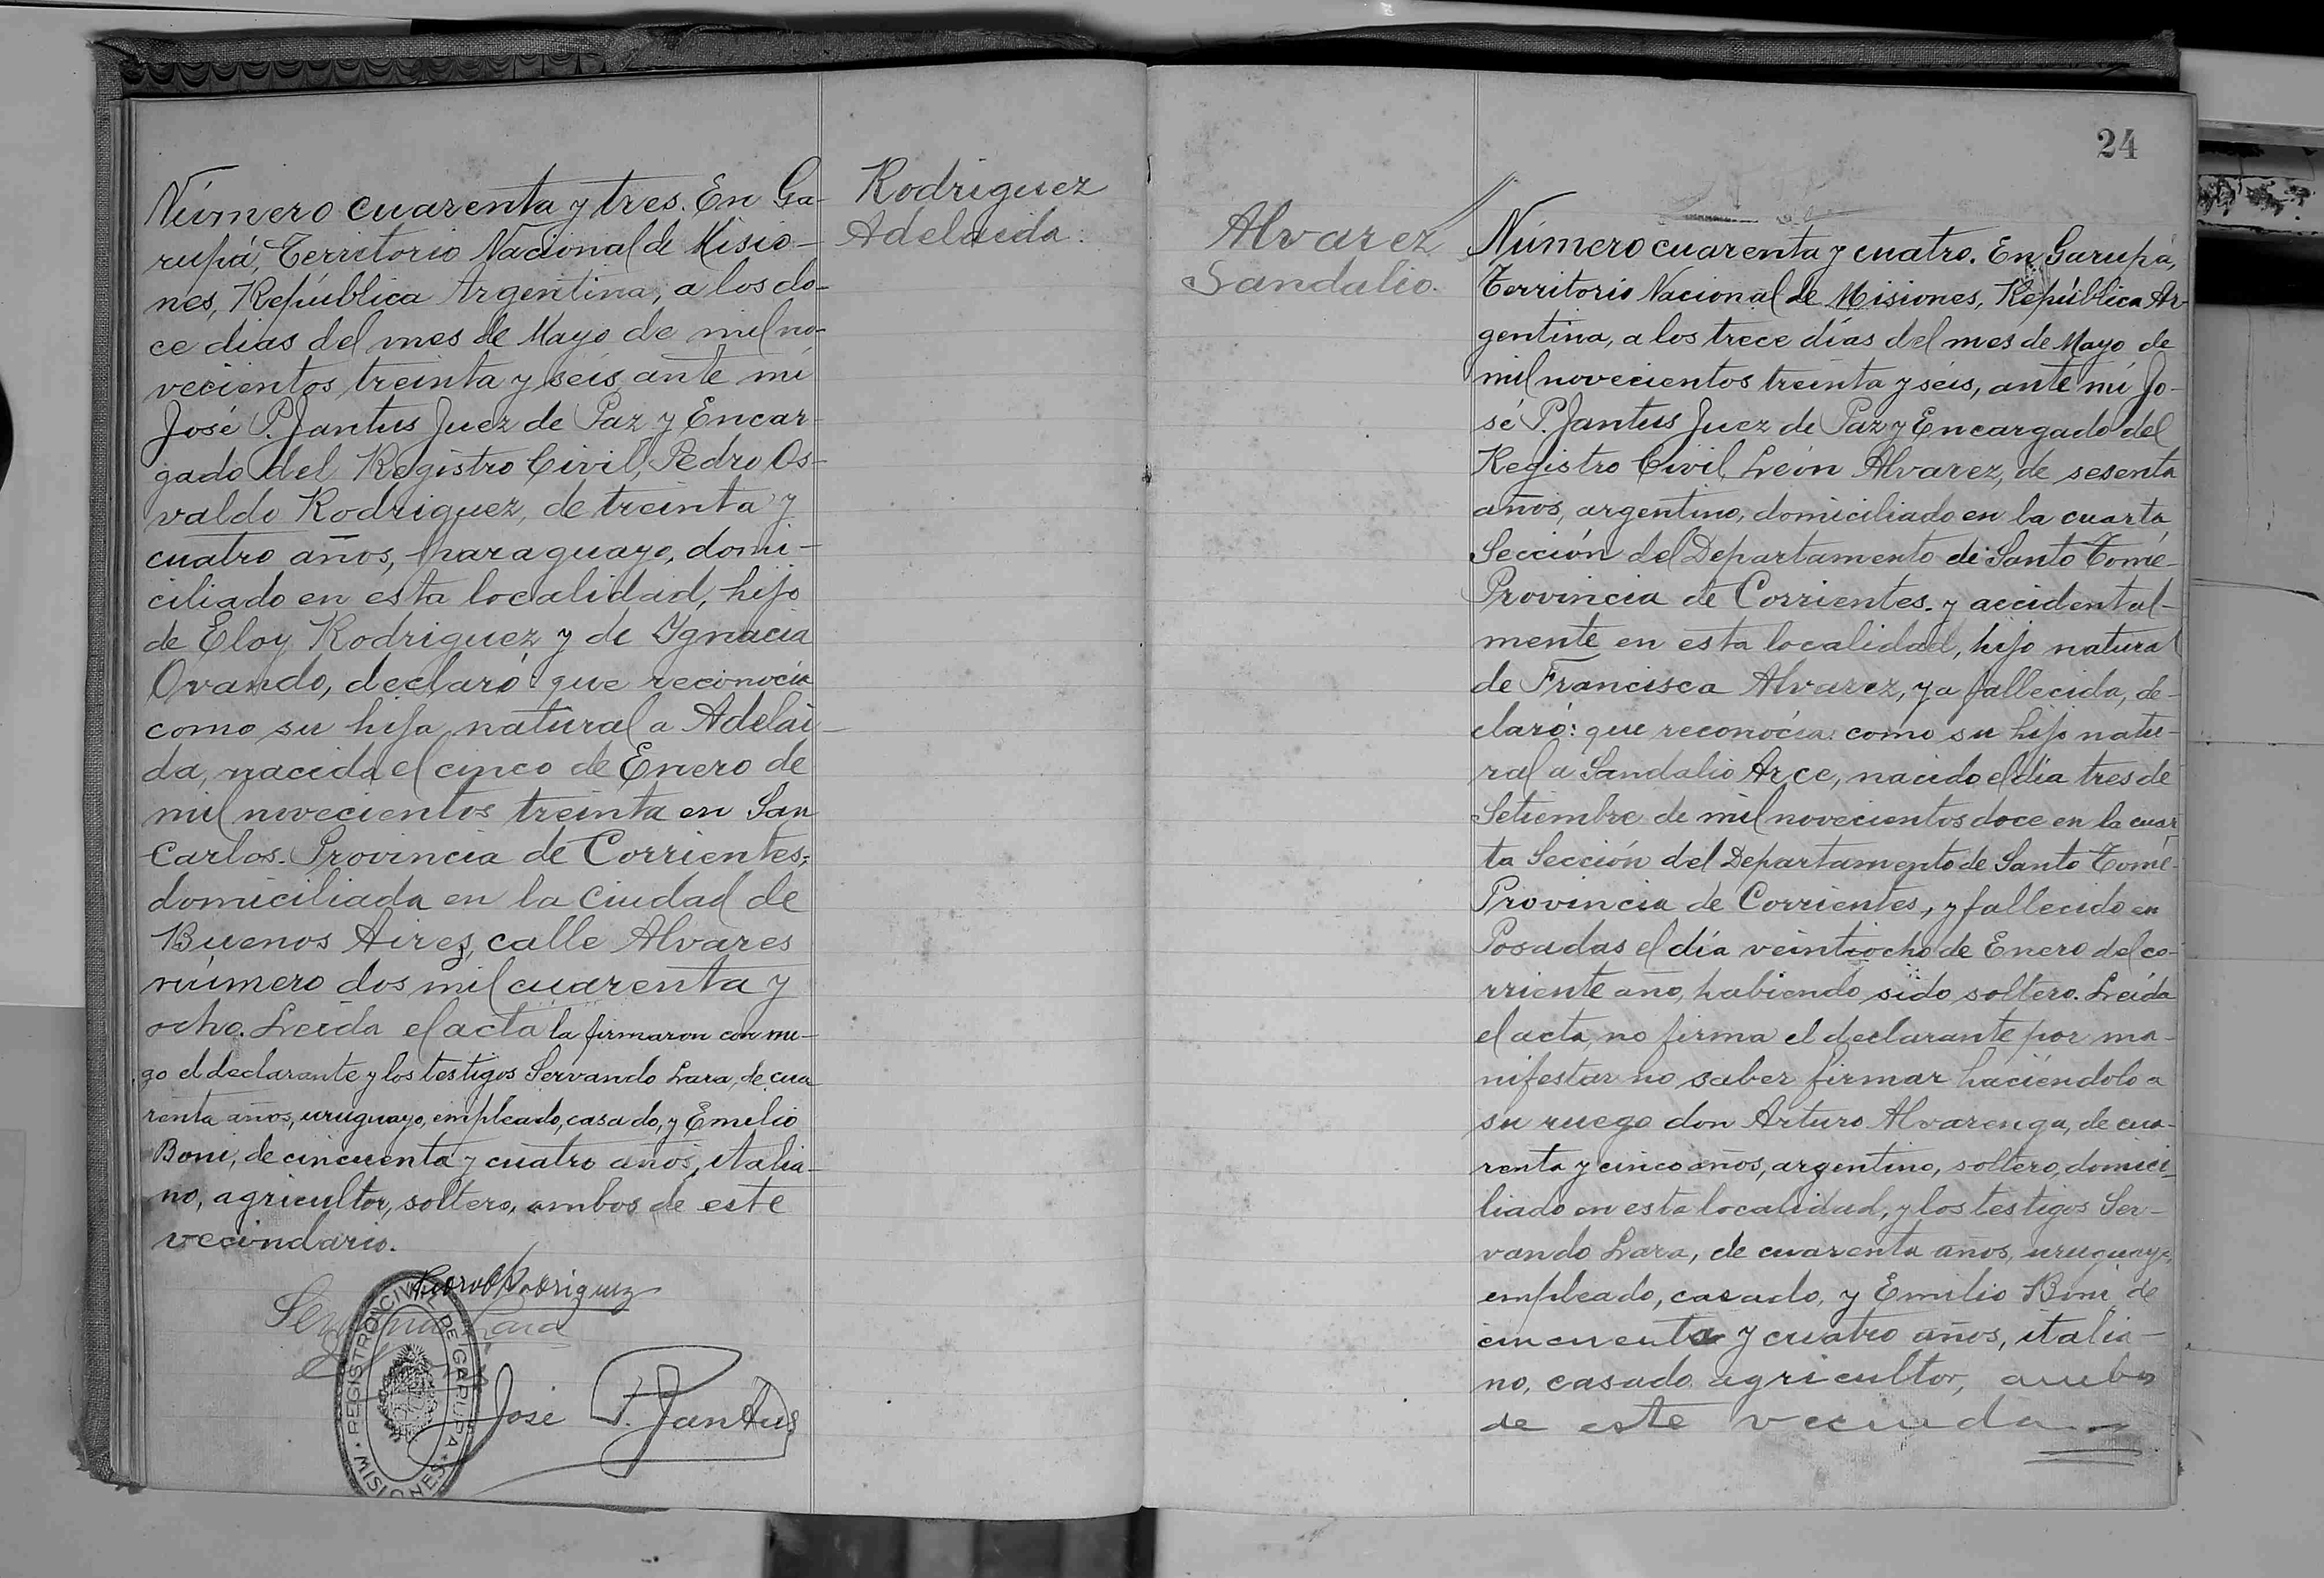 Número cuarenta y tres. En Ga-
rupá, Territorio Nacional de Misio-
nes, República Argentina, a los do-
ce dias del mes de Mayo de mil no-
vecientos treinta y seis ante mi
José P. Jantus Juez de Paz y Encar-
gado del Registro Civil, Pedro Os-
valdo Rodriguez, de treinta y
cuatro años, paraguayo, domi-
ciliado en esta localidad, hijo
de Eloy Rodriguez y de Ygnacia
Ovando, declaró: que reconocia
como su hija natural a Adelai-
da, nacida el cinco de Enero de
mil novecientos treinta en San
Carlos. Provincia de Corrientes;
domiciliada en la Ciudad de
Buenos Aires, calle Alvares
número dos mil cuarenta y
ocho. Leida el acta la firmaron con mi-
go el declarante y los testigos Servando Lara, de cua
renta años, uruguayo, empleado, casado, y Emilio
Boni, de cincuenta y cuatro años, italia-
no, agricultor, soltero, ambos de este
vecindario.
Rodriguez
Lara
José P. Jantus
REGISTRO CIVIL DE GARUPA
MISIONES
Rodriguez
Adelaida.
24
Alvarez
Sandalio.
Número cuarenta y cuatro. En Garupá,
Territorio Nacional de Misiones, República Ar-
gentina, a los trece días del mes de Mayo de
mil novecientos treinta y séis, ante mi Jo-
sé P. Jantus Juez de Paz y Encargado del
Registro Civil, León Alvarez, de sesenta
años, argentino, domiciliado en la cuarta
Sección del Departamento de Santo Tomé-
Provincia de Corrientes. y accidental-
mente en esta localidad, hijo natural
de Francisca Alvarez, ya fallecida, de-
claró: que reconócia: como su hijo natu-
ral a Sandalio Arce, nacido el día tres de
Setiembre de mil novecientos doce en la cuar
ta Sección del Departamento de Santo Tomé-
Provincia de Corrientes, y fallecido en
Posadas el día veintiocho de Enero del co-
rriente año, habiendo sido soltero. Leída
el acta, no firma el declarante por ma-
nifestar no saber firmar haciéndolo a
su ruego don Arturo Alvarenga, de cua-
renta y cinco años, argentino, soltero, domici-
liado en esta localidad, y los testigos Ser-
vando Lara, de cuarenta años, uruguayo,
empleado, casado, y Emilio Boni de
cincuenta y cuatro años, italia-
no, casado agricultor, ambos
de este